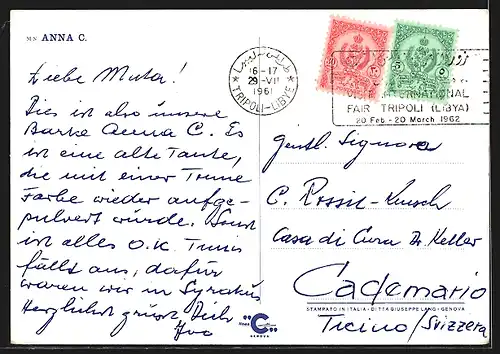 MN ANNA C.
Liebe Muta!
Dies ist also unsere
Barke Anna C. Es
ist eine alte Tante,
die mit einer Tonne
Farbe wieder aufge-
pulvert würde. Sonst
ist alles O.K. Tunis
fällt aus, dafür
waren wir in Syrakus
Herzlichst grüsst Dich
16-17
29-VII
1961
TRIPOLI-LIBYE
INTERNATIONAL
FAIR TRIPOLI (LIBYA)
20 Feb - 20 March 1962
Gentl. Signora
C. Rossi-
Casa di Cura Dr. Keller
Cademario
STAMPATO IN ITALIA - DITTA GIUSEPPE LANG - GENOVA
Ticino/Svizzera
"C"
GENOVA